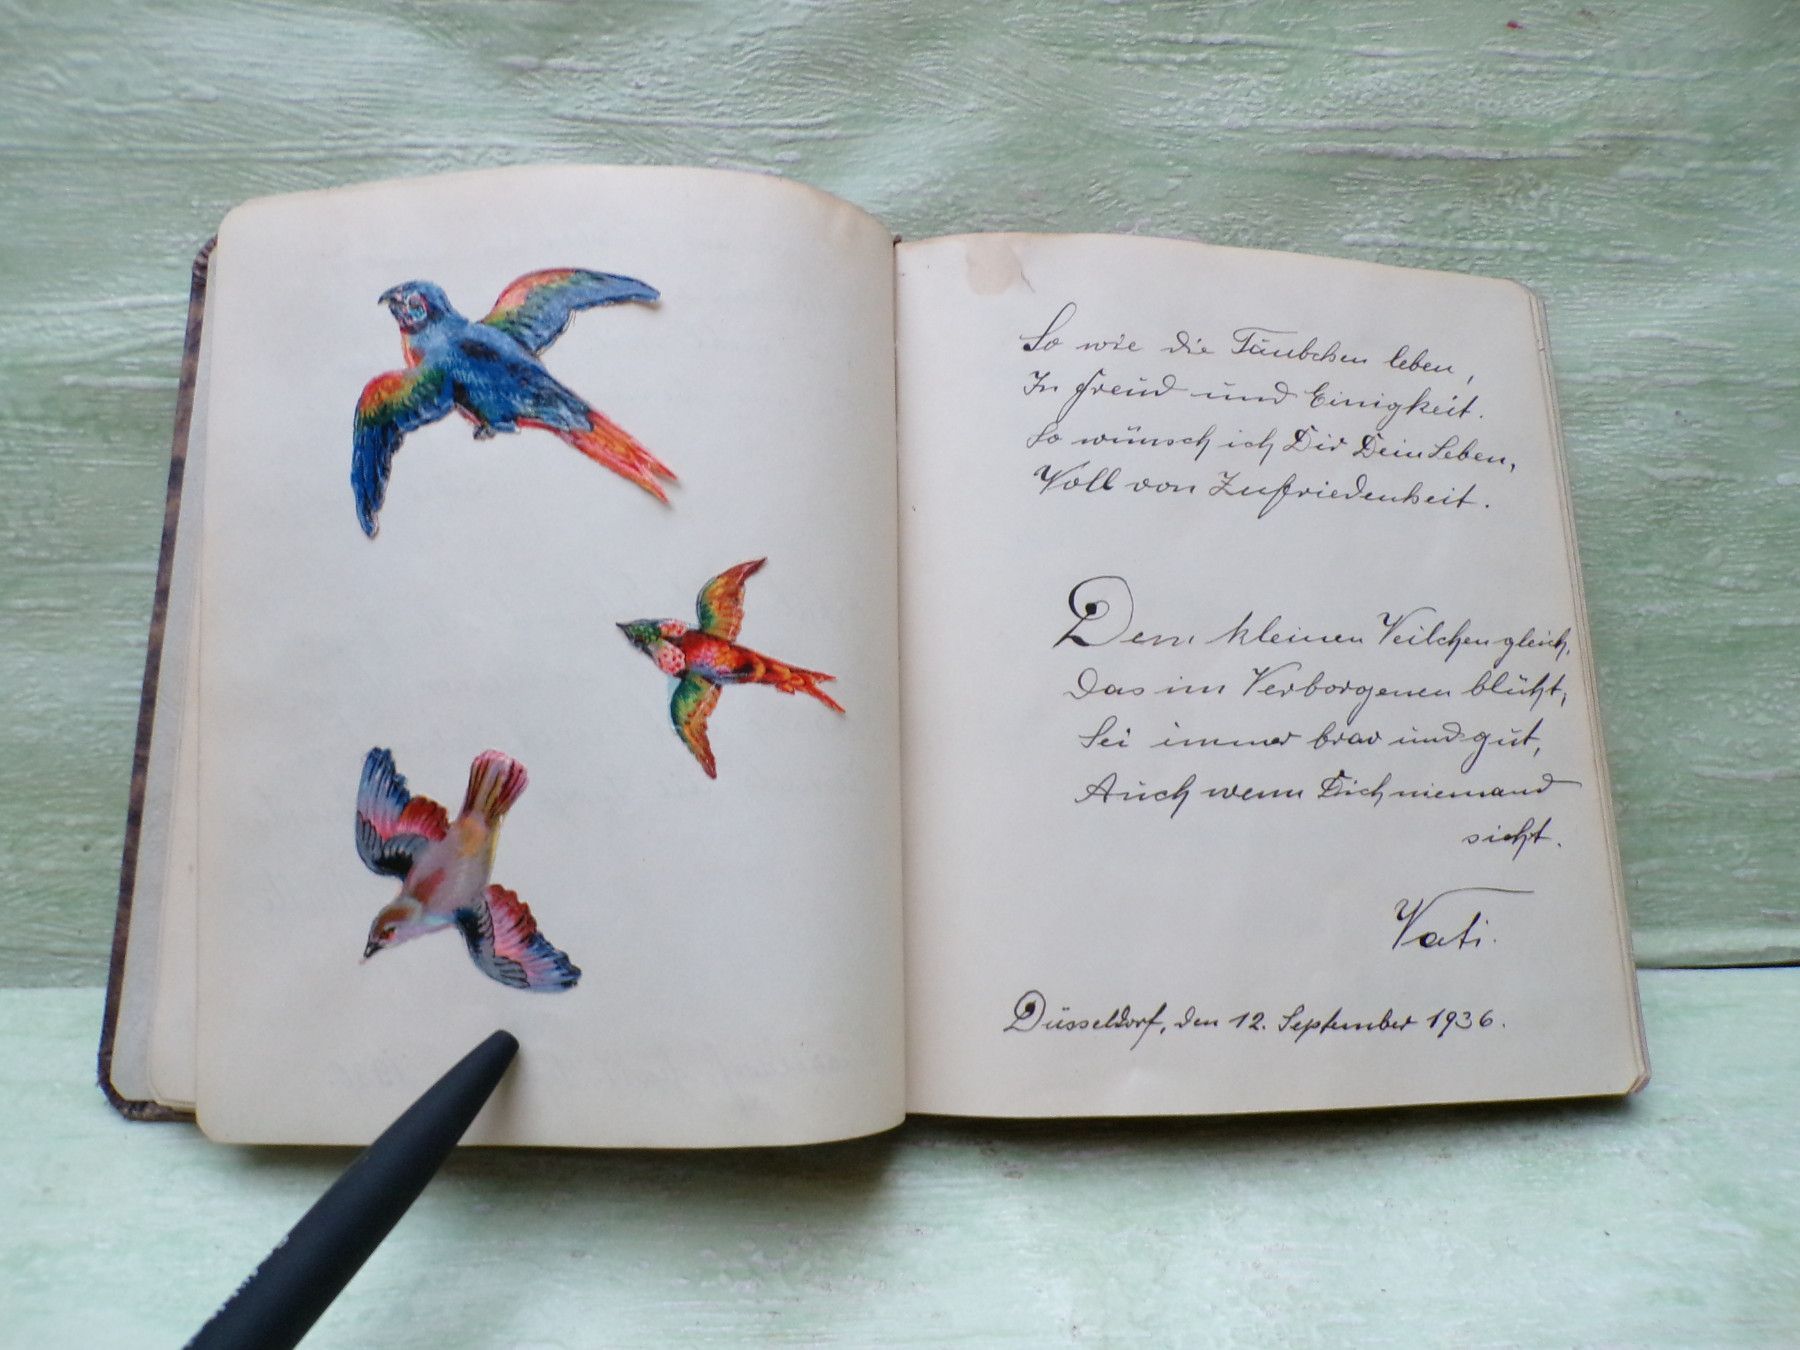 So wie die Täubchen leben,
In Freud und Einigkeit.
So wünsch ich Dir Dein Leben,
Voll von Zufriedenheit.
Dem kleinen Veilchen gleich,
Das im Verborgenen blüht,
Sei immer brav und gut,
Auch wenn Dich niemand
sieht.
Vati.
Düsseldorf, den 12. September 1936.